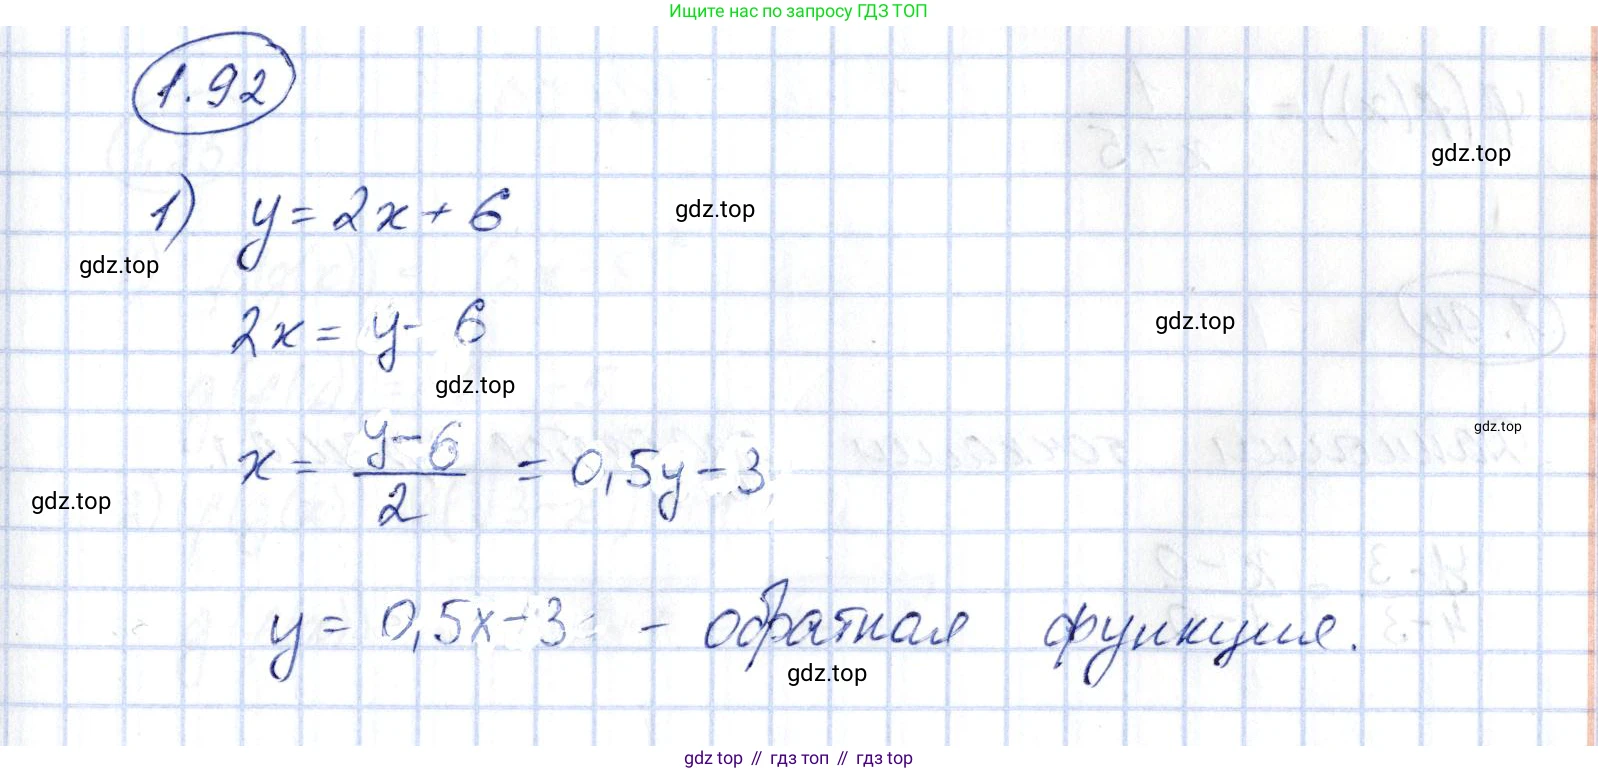 Ищите нас по запросу ГДЗ ТОП
1.92
gdz.top
1) y = 2x + 6
gdz.top
gdz.top
2x = y - 6
gdz.top
gdz.top
x = (y - 6)/2 = 0,5y - 3
gdz.top
gdz.top
y = 0,5x - 3 - обратная функция.
gdz.top
gdz top // гдз топ // гдз top